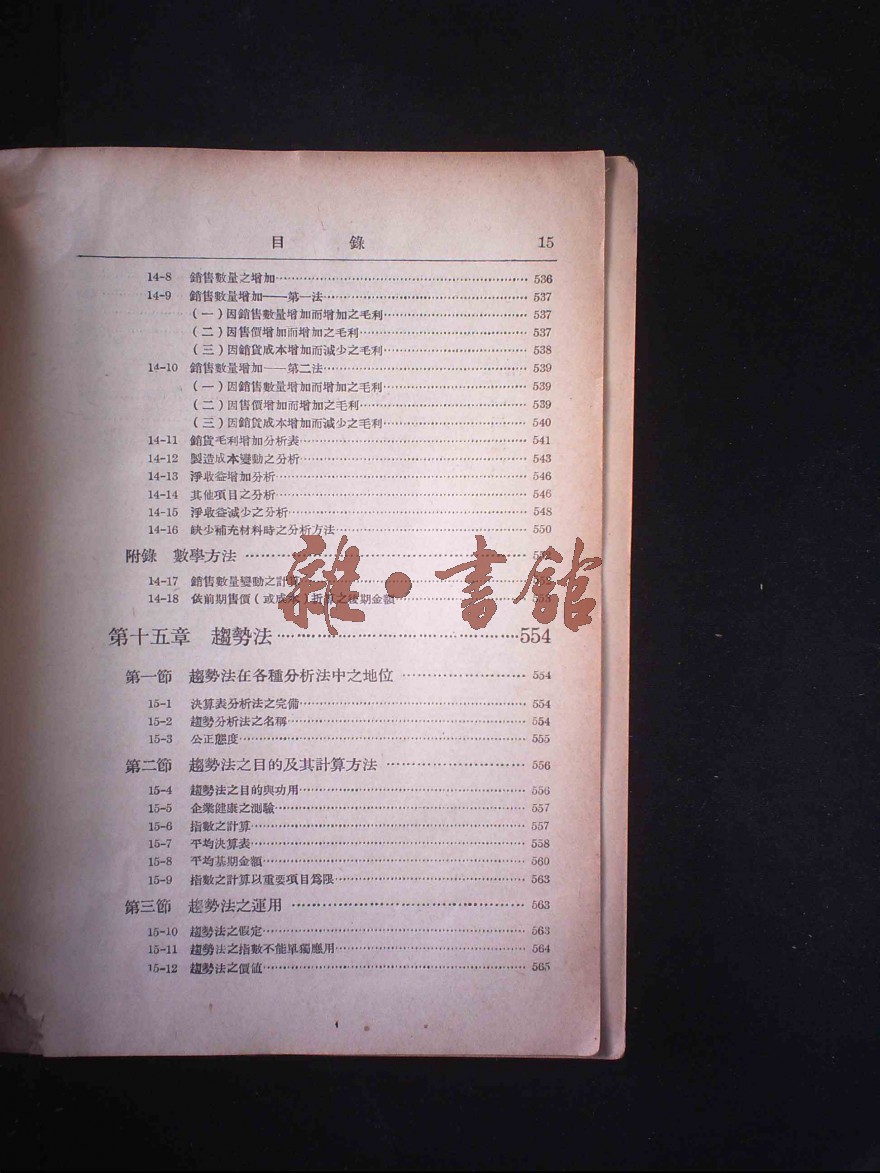 目 錄 15
14-8 銷售數量之增加 536
14-9 銷售數量增加——第一法 537
(一)因銷售數量增加而增加之毛利 537
(二)因售價增加而增加之毛利 537
(三)因銷貨成本增加而減少之毛利 538
14-10 銷售數量增加——第二法 539
(一)因銷售數量增加而增加之毛利 539
(二)因售價增加而增加之毛利 539
(三)因銷貨成本增加而減少之毛利 540
14-11 銷貨毛利增加分析表 541
14-12 製造成本變動之分析 543
14-13 淨收益增加分析 546
14-14 其他項目之分析 546
14-15 淨收益減少之分析 548
14-16 缺少補充材料時之分析方法 550
附錄 數學方法 552
14-17 銷售數量變動之計算 552
14-18 依前期售價(或成本)折算之後期金額 553
雜·書館
第十五章 趨勢法 554
第一節 趨勢法在各種分析法中之地位 554
15-1 決算表分析法之完備 554
15-2 趨勢分析法之名稱 554
15-3 公正態度 555
第二節 趨勢法之目的及其計算方法 556
15-4 趨勢法之目的與功用 556
15-5 企業健康之測驗 557
15-6 指數之計算 557
15-7 平均決算表 558
15-8 平均基期金額 560
15-9 指數之計算以重要項目爲限 563
第三節 趨勢法之運用 563
15-10 趨勢法之假定 563
15-11 趨勢法之指數不能單獨應用 564
15-12 趨勢法之價值 565